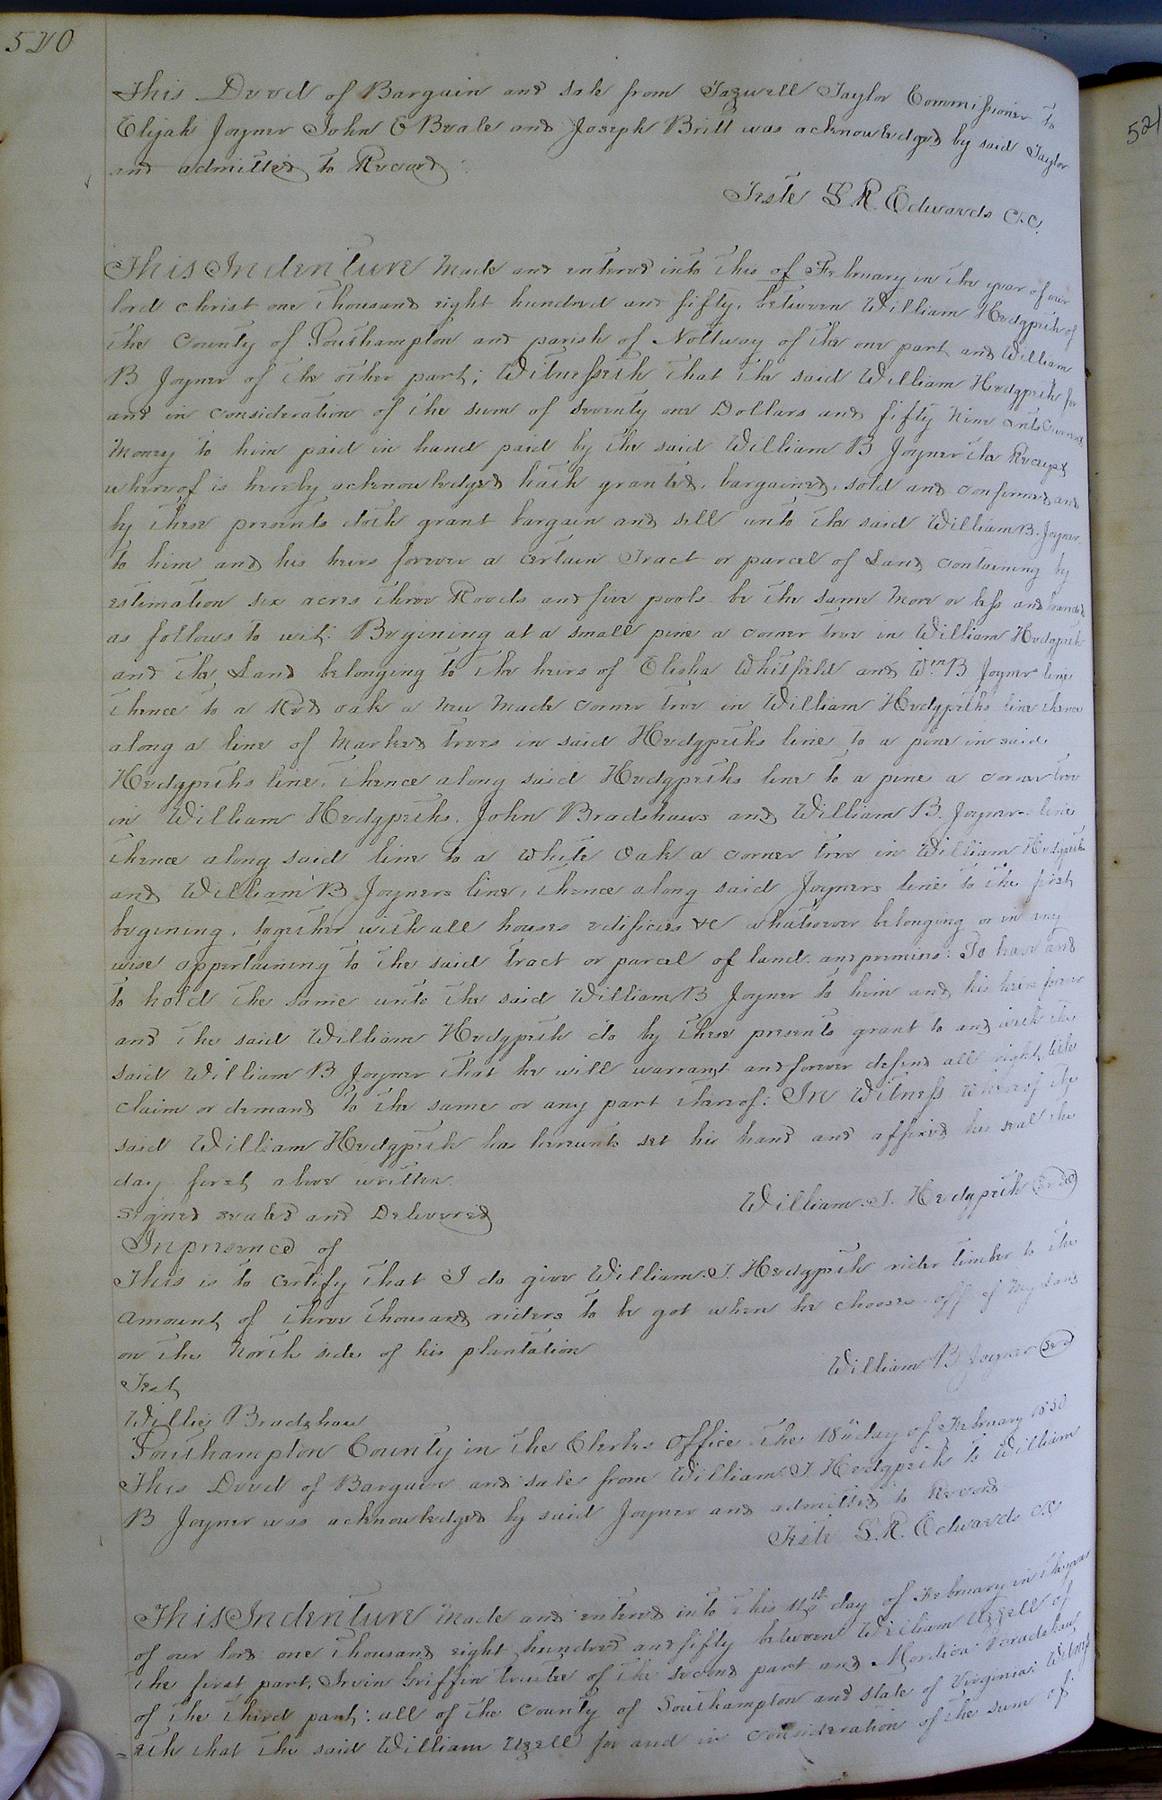 520
This Deed of Bargain and sale from Tazwell Taylor Commissioner to
Elijah Joyner John E Beale and Joseph Britt was acknowledged by said Taylor
and admitted to Record
Teste L. R. Edwards C.C.
This Indenture Made and entered into this of February in the year of our
lord Christ one thousand eight hundred and fifty, between William Hedgpeth of
the County of Southampton and parish of Nottway of the one part and William
B Joyner of the other part; Witnesseth that the said William Hedgpeth for
and in consideration of the sum of seventy one Dollars and fifty Nine Cents Current
Money to him paid in hand paid by the said William B Joyner the Receipt
whereof is hereby acknowledged hath granted, bargained, sold and confirmed and
by these presents doth grant bargain and sell unto the said William B. Joyner
to him and his heirs forever a certain Tract or parcel of Land containing by
estimation six acres three Roods and five pools be the same More or less and bounded
as follows to wit: Begining at a small pine a corner tree in William Hedgpeth
and the Land belonging to the heirs of Elisha Whitfield and Wm. B Joyners line
thence to a Red oak a new made corner tree in William Hedgpeths line thence
along a line of Marked trees in said Hedgpeths line to a pine in said
Hedgpeths line, thence along said Hedgpeths line to a pine a corner tree
in William Hedgpeths, John Bradshaws and William B. Joyners line
thence along said line to a white Oak a corner tree in William Hedgpeth
and William B Joyners line, thence along said Joyners line to the first
begining, together with all houses edificies &c whatsoever belonging or in any
wise appertaining to the said tract or parcel of land and premises: To have and
to hold the same unto the said William B Joyner to him and his heirs forever
and the said William Hedgpeth do by these presents grant to and with the
said William B Joyner that he will warrant and forever defend all right title
claim or demand to the same or any part thereof: In Witness whereof the
said William Hedgpeth has hereunto set his hand and affixed his seal the
day first above written.
Signed sealed and Delivered
William. T. Hedgpeth (seal)
In presence of
This is to certify that I do give William. T. Hedgpeth rider timber to the
amount of three thousand riders to be got when he chooses off of my land
on the North side of his plantation
William B Joyner (seal)
Test
Willie Bradshaw
Southampton County in the Clerks office the 18th day of February 1850
This Deed of Bargain and sale from William T. Hedgpeth to William
B Joyner was acknowledged by said Joyner and admitted to Record
Teste L. R. Edwards C.C
This Indenture Made and entered into this day of February in the year
of our lord one thousand eight hundred and fifty between William Uzzell of
the first part, Irvin Griffin trustee of the second part and Mordica Bradshaw
of the third part: all of the County of Southampton and state of Virginia: Witness
=eth that the said William Uzell for and in consideration of the sum of